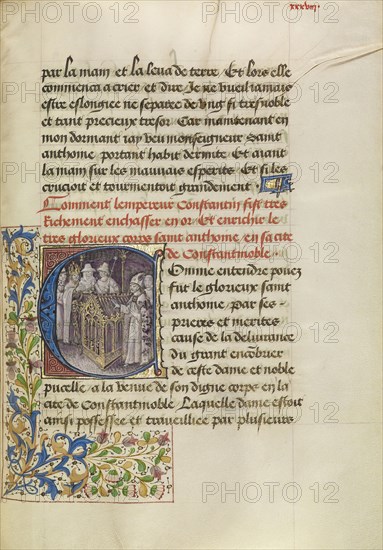 xxxviii
par la main et la leva de terre. Et lors elle
commenca a crier et dire Je ne vueil jamais
estre eslongiee ne separee de ung si tres noble
et tant precieux tresor. Car maintenant en
mon dormant jay veu monseigneur saint
anthome portant habit dermite. Et avant
la main sur les mauvais esperits. Et si les
crucioit et tourmentoit grandement
Comment lempereur Constantin fist tres
Richement enchasser en or. Et enrichir le
tres glorieux corps saint anthome, en sa cite
de Constantinoble.
Comme entendre povez
fut le glorieux saint
anthome par ses
prieres et merites
cause de la delivrance
du grant encombrier
de ceste dame et noble
pucelle, a la venue de son digne corps en la
cite de Constantinoble. Laquelle dame estoit
ainsi possessee et travaillee par plusieurs
PHOTO 12